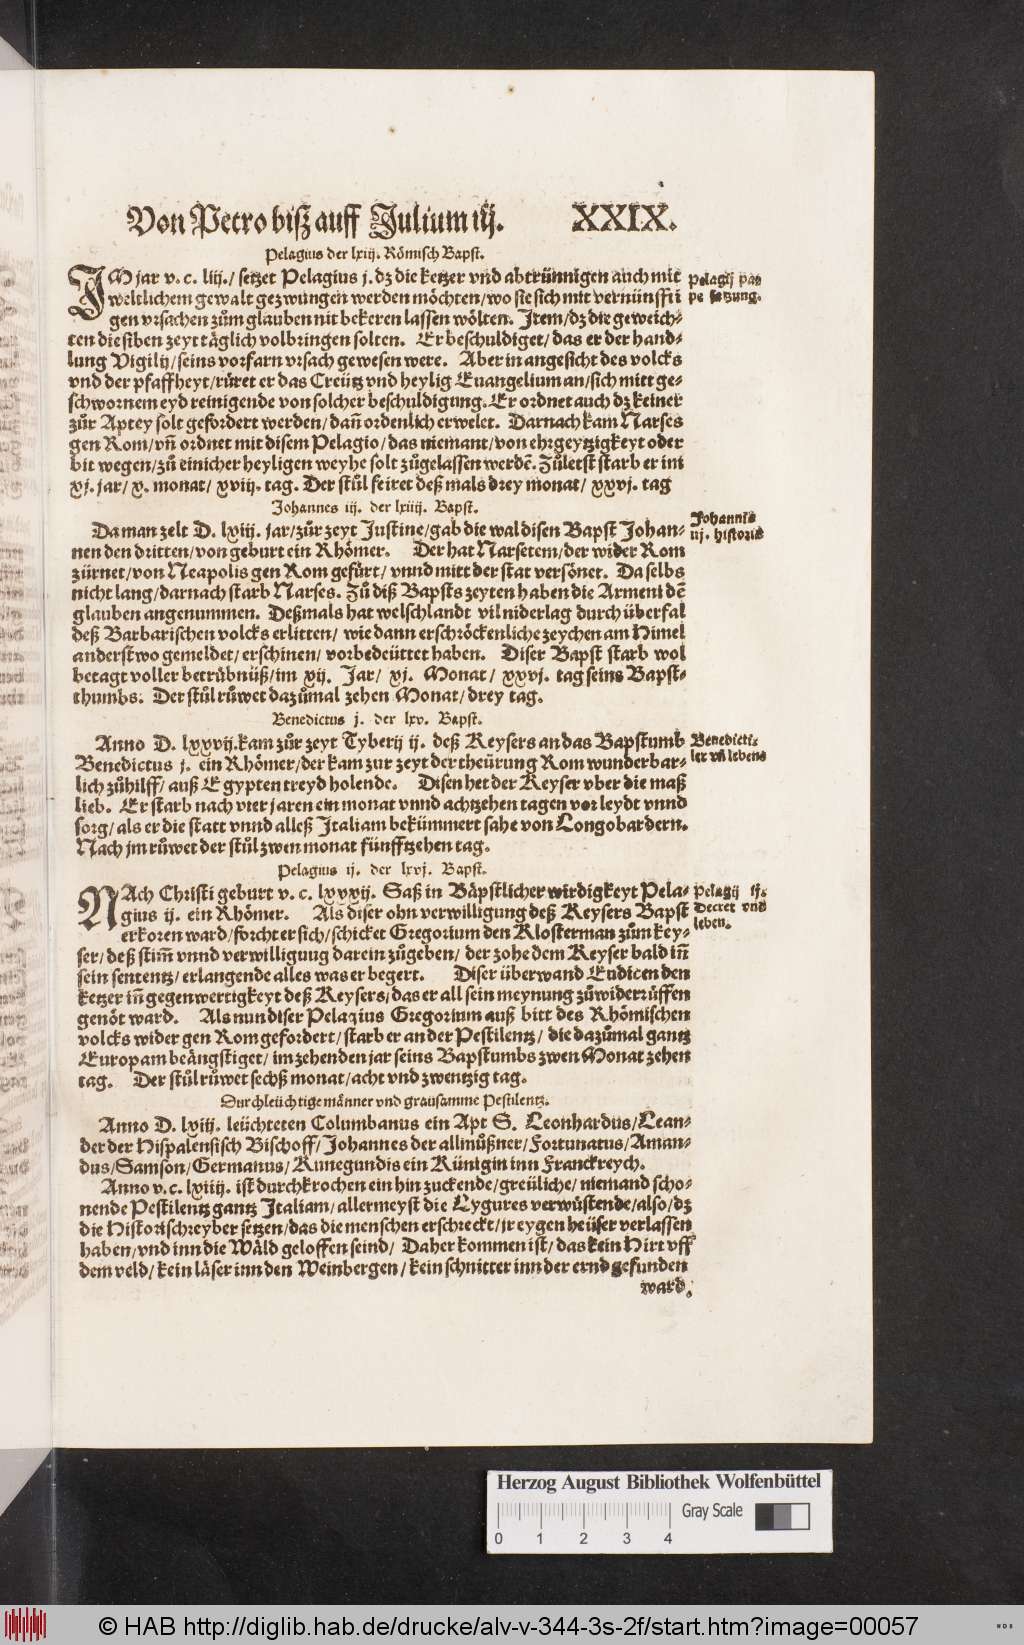 Von Petro biß auff Julium iij. XXIX.
Pelagius der lxiij. Römisch Bapst.
IM jar v. c. liij./ setzet Pelagius j. dz die ketzer vnd abtrünnigen auch mit
weltlichem gewalt gezwungen werden möchten/ wo sie sich mit vernünffti
gen vrsachen zům glauben nit bekeren lassen wölten. Item/ dz die geweich-
ten die siben zeyt täglich volbringen solten. Er beschuldiget/ das er der hand-
lung Vigilij/ seins vorfarn vrsach gewesen were. Aber in angesicht des volcks
vnd der pfaffheyt/ růret er das Creütz vnd heylig Euangelium an/ sich mitt ge-
schwornem eyd reinigende von solcher beschuldigung. Er ordnet auch dz keiner
zůr Aptey solt gefordert werden/ dañ ordenlich erwelet. Darnach kam Narses
gen Rom/ vñ ordnet mit disem Pelagio/ das niemant/ von ehrgeytzigkeyt oder
bit wegen/ zů einicher heyligen weyhe solt zůgelassen werdẽ. Zůletst starb er im
xj. jar/ x. monat/ xviij. tag. Der stůl feiret deß mals drey monat/ xxvj. tag
Pelagij pa=
pe satzung.
Johannes iij. der lxiiij. Bapst.
Da man zelt D. lxiij. jar/ zůr zeyt Justine/ gab die wal disen Bapst Johan-
nen den dritten/ von geburt ein Rhömer. Der hat Narsetem/ der wider Rom
zürnet/ von Neapolis gen Rom gefůrt/ vnnd mitt der stat versönet. Da selbs
nicht lang/ darnach starb Narses. Zů diß Bapsts zeyten haben die Armeni dẽ
glauben angenummen. Deßmals hat welschlandt vil niderlag durch überfal
deß Barbarischen volcks erlitten/ wie dann erschröckenliche zeychen am Himel
anderstwo gemeldet/ erschinen/ vorbedeüttet haben. Diser Bapst starb wol
betagt voller betrůbnüß/ im xij. Jar/ xj. Monat/ xxvj. tag seins Bapst-
thumbs. Der stůl růwet dazůmal zehen Monat/ drey tag.
Johannis
iij. historie
Benedictus j. der lxv. Bapst.
Anno D. lxxvij. kam zůr zeyt Tyberij ij. deß Keysers an das Bapstumb
Benedictus j. ein Rhömer/ der kam zur zeyt der theürung Rom wunderbar-
lich zůhilff/ auß Egypten treyd holende. Disen het der Keyser vber die maß
lieb. Er starb nach vier jaren ein monat vnnd achtzehen tagen vor leydt vnnd
sorg/ als er die statt vnnd alleß Italiam bekümmert sahe von Longobardern.
Nach jm růwet der stůl zwen monat fünfftzehen tag.
Benedicti=
ler vñ lebens
Pelagius ij. der lxvj. Bapst.
NAch Christi geburt v. c. lxxxij. Saß in Bäpstlicher wirdigkeyt Pela-
gius ij. ein Rhömer. Als diser ohn verwilligung deß Keysers Bapst
erkoren ward/ forcht er sich/ schicket Gregorium den Klosterman zům key-
ser/ deß stim̃ vnnd verwilligung darein zůgeben/ der zohe dem Keyser bald iñ
sein sententz/ erlangende alles was er begert. Diser überwand Eudicen den
ketzer iñ gegenwertigkeyt deß Keysers/ das er all sein meynung zůwiderrůffen
genöt ward. Als nun diser Pelagius Gregorium auß bitt des Rhömischen
volcks wider gen Rom gefordert/ starb er an der Pestilentz/ die dazůmal gantz
Europam beängstiget/ im zehenden jar seins Bapstumbs zwen Monat zehen
tag. Der stůl růwet sechß monat/ acht vnd zwentzig tag.
Pelagij ij.
Decret vnd
leben.
Durchleüchtige männer vnd grausamme Pestilentz.
Anno D. lviij. leüchteten Columbanus ein Apt S. Leonhardus/ Lean-
der der Hispalensisch Bischoff/ Johannes der allmůßner/ Fortunatus/ Aman-
dus/ Samson/ Germanus/ Kunegundis ein Künigin inn Franckreych.
Anno v. c. lxiiij. ist durchkrochen ein hin zuckende/ greüliche/ niemand scho-
nende Pestilentz gantz Italiam/ allermeyst die Lygures verwůstende/ also/ dz
die Historischreyber setzen/ das die menschen erschreckt/ jr eygen heüser verlassen
haben/ vnd inn die Wäld geloffen seind/ Daher kommen ist/ das kein Hirt vff
dem veld/ kein läser inn den Weinbergen/ kein schnitter inn der ernd gefunden
ward.
Herzog August Bibliothek Wolfenbüttel
Gray Scale
0 1 2 3 4
© HAB http://diglib.hab.de/drucke/alv-v-344-3s-2f/start.htm?image=00057